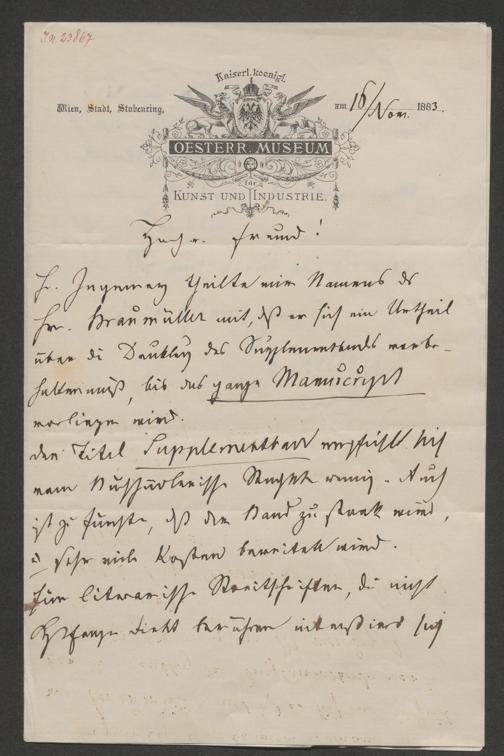 In. 23867
Kaiserl. koenigl.
Wien, Stadt, Stubenring.
am 16/Nov. 1883.
OESTERR. MUSEUM
für
KUNST UND INDUSTRIE.
Freund!
Hr. theilte mir Namens des
Hrn. Braumüller mit, daß er sich ein Urtheil
über die des Supplementbandes vorbe-
halten muß, bis das ganze Manuscript
vorliegen wird.
Der Titel Supplementband empfiehlt sich
vom Buchhändlerischen wenig. Auch
ist zu fürchten, daß der Band zu stark wird,
u sehr viele Kosten bereiten wird.
Für literarische Streitschriften, die nicht
direkt berühren interessiert sich